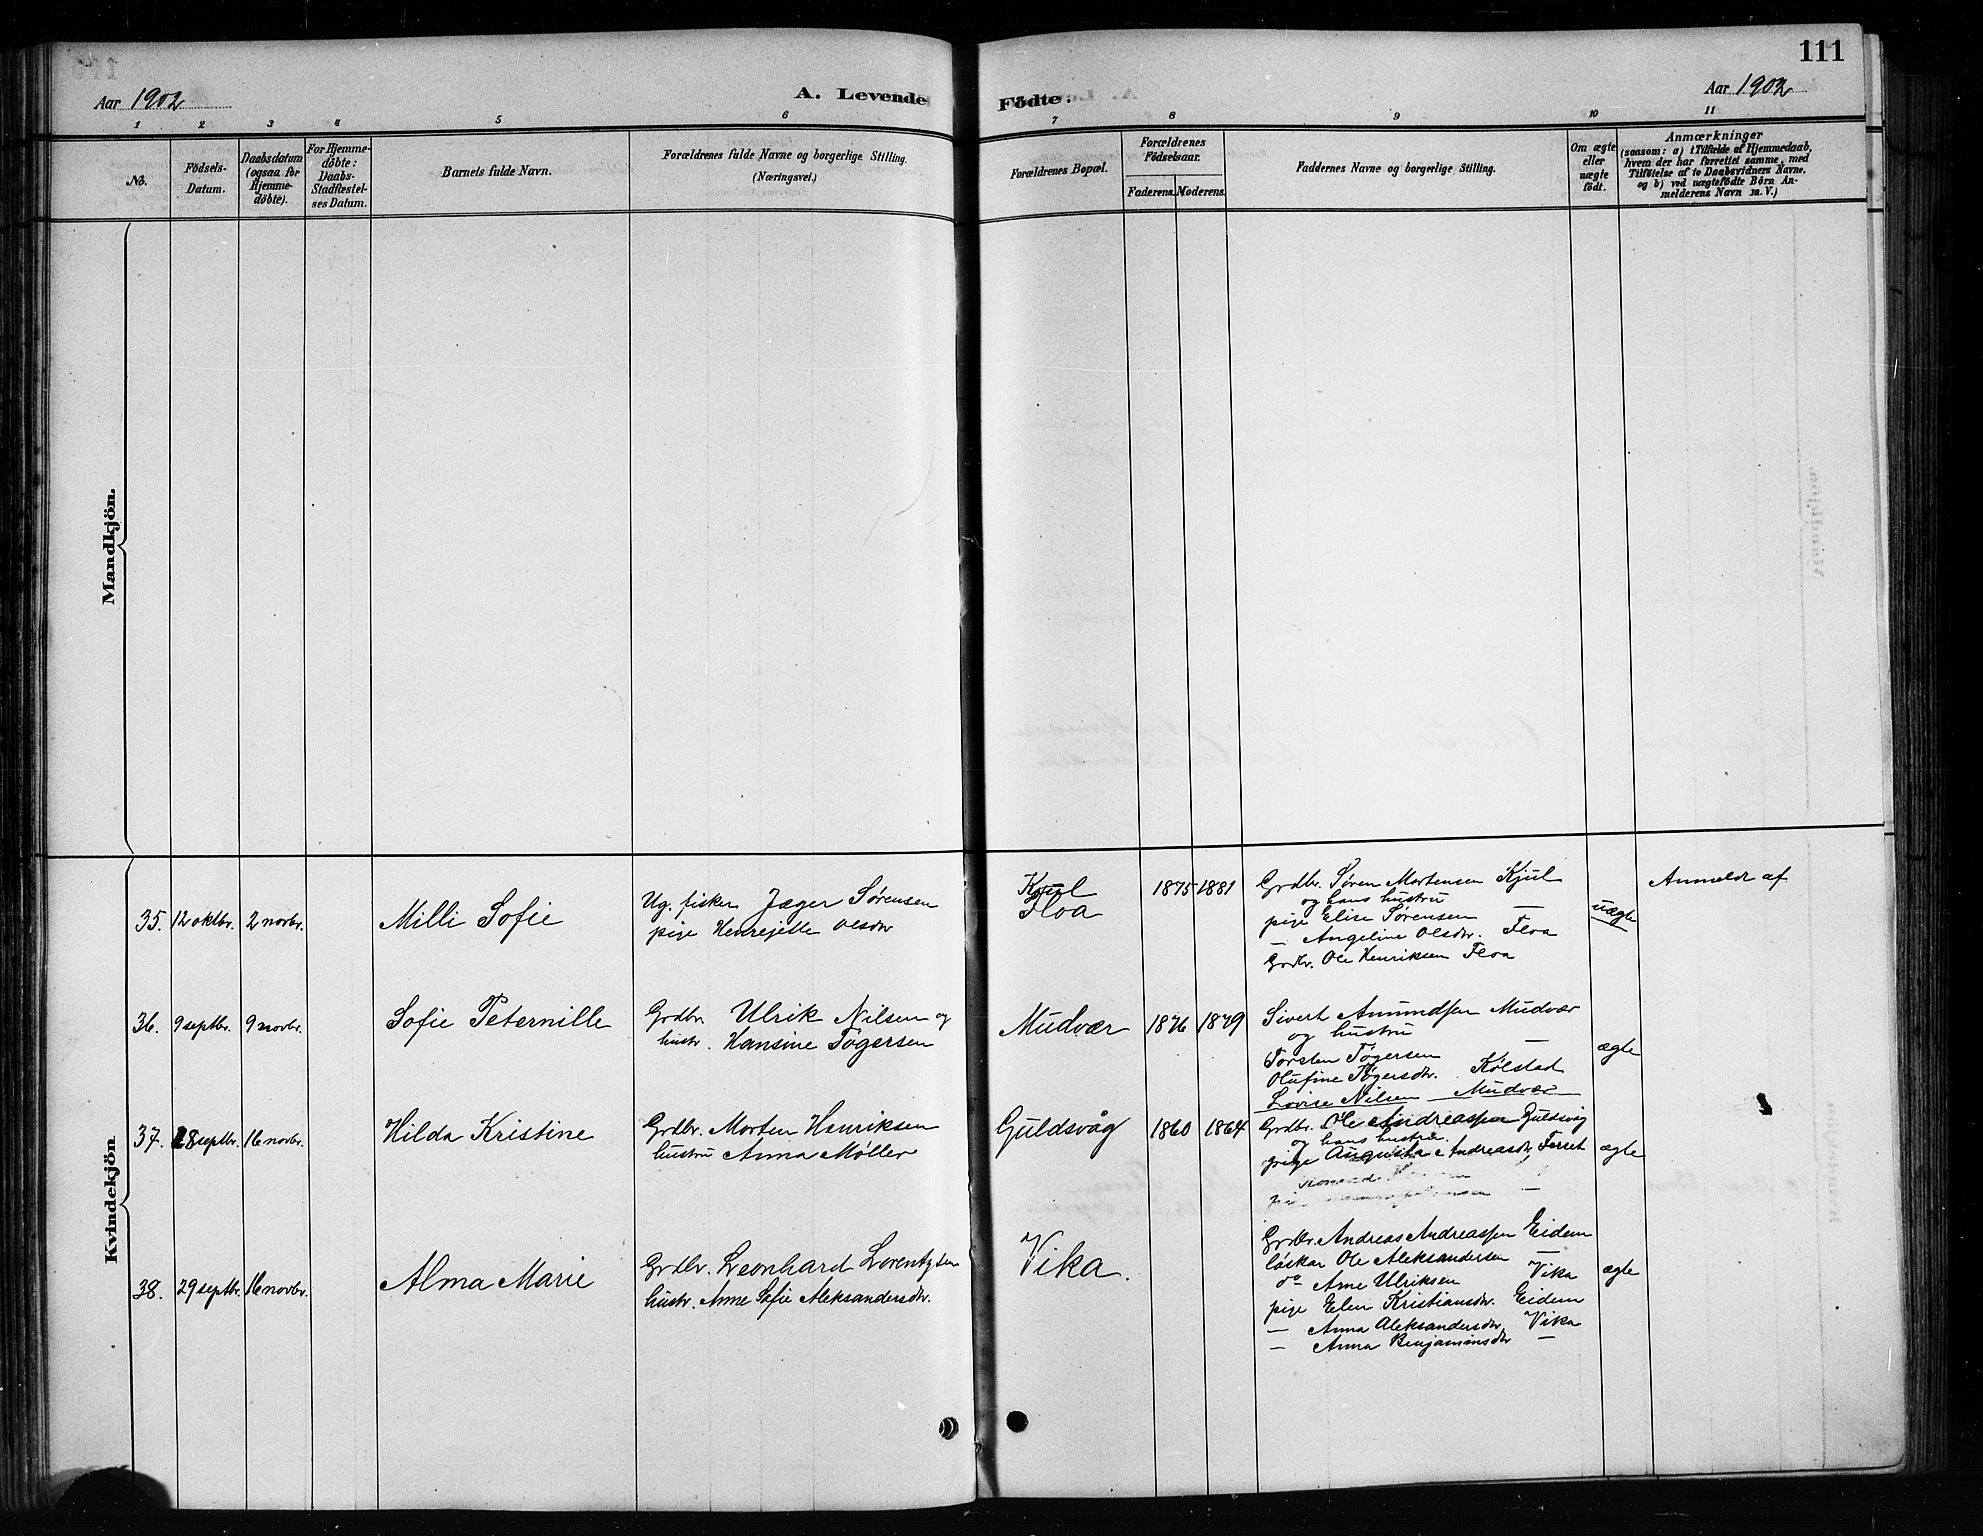 111
Aar 1902
A. Levende Födte.
Aar 1902
1 2 3 4 5 6 7 8 9 10 11
No.
Födsels-Datum.
Daabsdatum (ogsaa for Hjemmedöbte).
For Hjemmedöbte: Daabs-Stadfæstelses Datum.
Barnets fulde Navn.
Forældrenes fulde Navne og borgerlige Stilling.
(Næringsvei.)
Forældrenes Bopæl.
Forældrenes Födselsaar.
Faderens. Moderens.
Faddernes Navne og borgerlige Stilling.
Om ægte eller uægte født.
Anmærkninger
(saasom: a) i Tilfælde af Hjemmedaab,
hvem der har forrettet samme, med
Tilföielse af to Daabsvidners Navne,
og b) ved uægtefödte Börn An-
melderens Navn m. V.)
Mandkjön.
Kvindekjön
35. 12 oktbr. 2 novbr. Milli Sofie
Ug. fisker Jæger Sørensen
pige Henrejette Olsdtr
Kjul
Floa
1875 1881
Grdbr. Søren Mortensen Kjul
og hans hustru
pige Elise Sørensen —
— Angeline Olsdtr. Floa
Grdbr. Ole Henriksen Floa
uægte
Anmeldt af
36. 9 septbr. 9 novbr. Sofie Peternille
Grdbr. Ulrik Nilsen og
hustr. Hansine Tøgersen
Mudvær 1876 1879
Sivert Amundsen Mudvær
og hustru —
Torsten Tøgersen
Olufine Tøgersdtr. Kølstad
Lovise Nilsen Mudvær
ægte
37. 28 septbr. 16 novbr. Hilda Kristine
Grdbr. Morten Henriksen
hustru Anna Møller
Guldsvåg 1860 1864
Grdbr. Ole Andreassen Guldsvåg
og hans hustru
pige Augusta Andreasdtr Ferret
ægte
38. 29 septbr. 16 novbr. Alma Marie
Grdbr. Leonhard Lorentzen
hustr. Anne Sofie Aleksandersdtr.
Vika.
Grdbr. Andreas Andreassen Eidem
løskar Ole Aleksandersen —
do Arne Ulriksen Vika
pige Elen Kristiansdtr. Eidem
— Anna Aleksandersdtr. Vika
— Anna Benjaminsdtr —
ægte